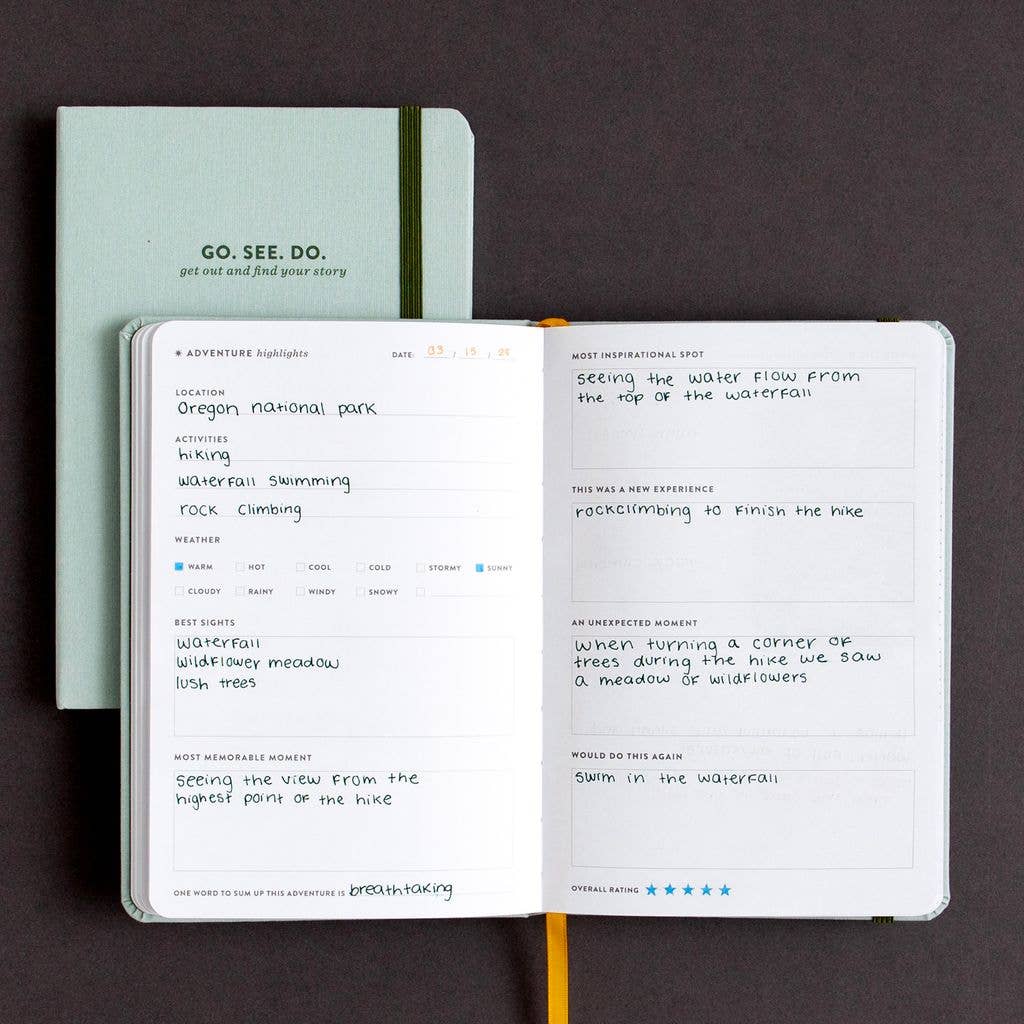 GO. SEE. DO.
get out and find your story
ADVENTURE highlights
DATE: 03 / 15 /
LOCATION
Oregon national park
ACTIVITIES
hiking
waterfall swimming
rock climbing
WEATHER
WARM HOT COOL COLD STORMY SUNNY
CLOUDY RAINY WINDY SNOWY
BEST SIGHTS
waterfall
wildflower meadow
lush trees
MOST MEMORABLE MOMENT
seeing the view from the
highest point of the hike
ONE WORD TO SUM UP THIS ADVENTURE IS breathtaking
MOST INSPIRATIONAL SPOT
seeing the water flow from
the top of the waterfall
THIS WAS A NEW EXPERIENCE
rockclimbing to finish the hike
AN UNEXPECTED MOMENT
when turning a corner of
trees during the hike we saw
a meadow of wildflowers
WOULD DO THIS AGAIN
swim in the waterfall
OVERALL RATING